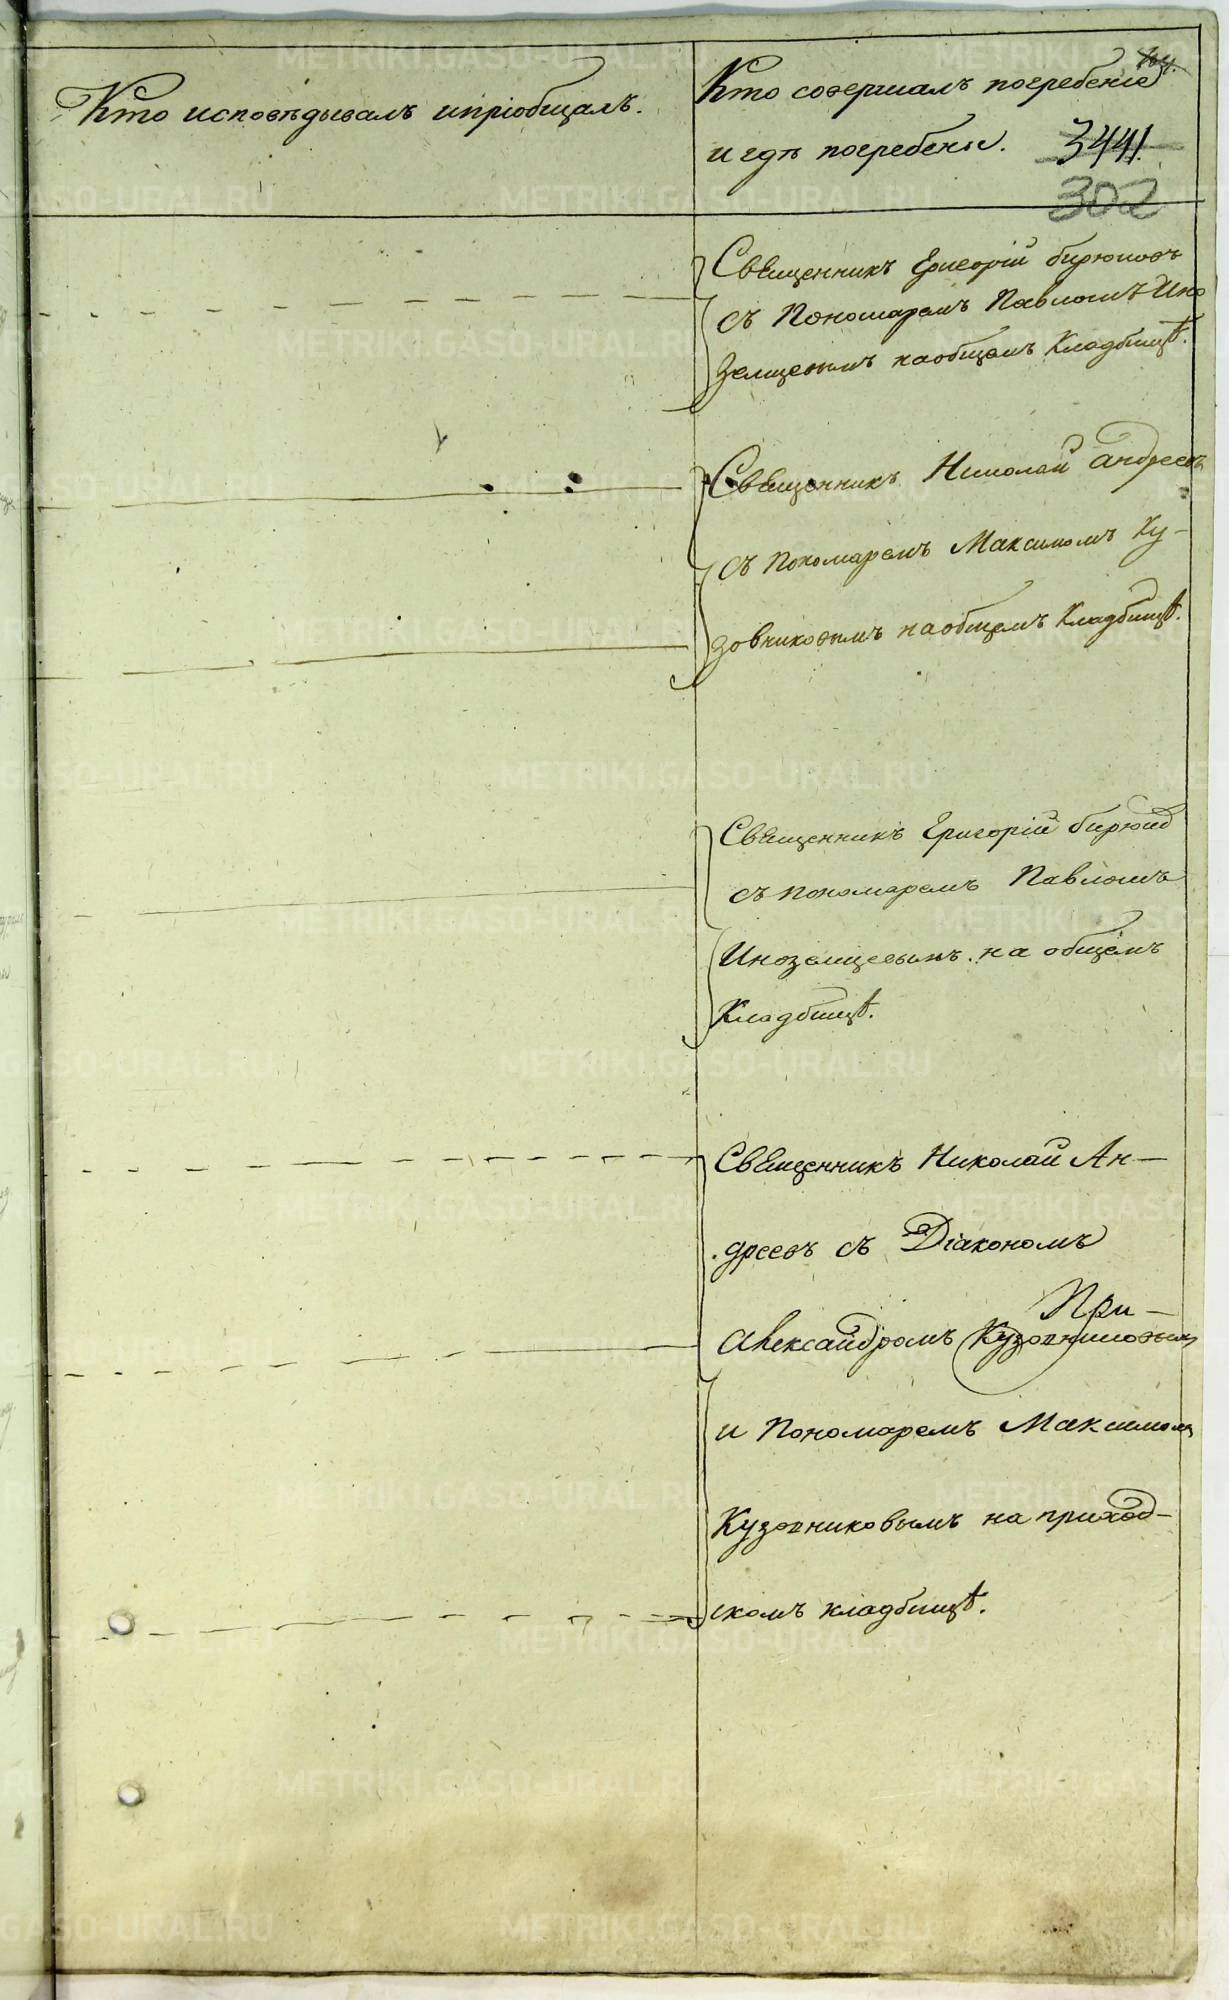 Кто исповѣдывалъ ипріобщалъ.
Кто совершалъ погребеніе
и гдѣ погребены. 3441.
302
Священникъ Григорій бирюковъ
съ Пономаремъ Павломъ Ино
земцевымъ наобщемъ Кладбищѣ.
Священникъ Николай андреевъ
съ Пономаремъ Максимомъ Ку-
зовниковымъ наобщемъ Кладбищѣ.
Священникъ Григорій бирюков
съ пономаремъ Павломъ
Иноземцевымъ. на общемъ
Кладбищѣ.
Священникъ Николай Ан-
дреевъ съ Діакономъ
При-
Александромъ Кузовниковымъ
и Пономаремъ Максимомъ
Кузовниковымъ на приход-
скомъ кладбищѣ.
METRIKI.GASO-URAL.RU